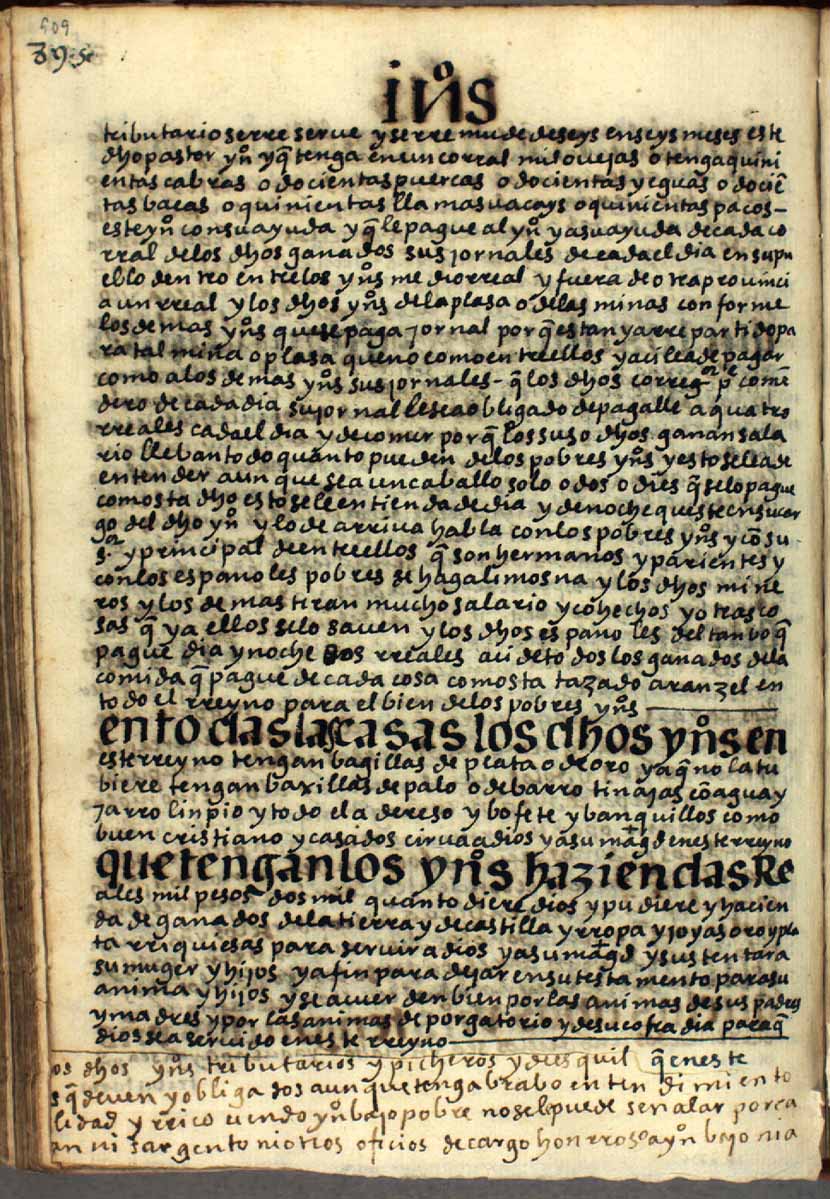 509
795
ínos
tributario se rre serue y se rre mude de seys en seys meses este
dho pastor yno y q̃ tenga en un corral mil ouejas o tenga quini
entas cabras o docientas puercas o docientas yeguas o dociē
tas bacas o quinientas llamas uacays o quinientas pacos –
este yno con su ayuda y q̃ le pague al yno y a su ayuda de cada co
rral de los dhos ganados sus jornales de cada el dia en su pu
eblo dentro entre los ynos medio rreal y fuera de otra prouinci
a un rreal y los dhos ynos de la plasa o de las minas conforme
los demas ynos que se paga jornal porq̃ estan ya rrepartido pa
ra tal mina o plasa que no como entre ellos y aci le a de pagar
como a los demas ynos sus jornales – q̃ los dhos corregor pe comē
dero de cada dia su jornal le sea obligado de pagalle a quatro
rreales cada el dia y de comer porq̃ los suso dhos ganan sala
rio lleban todo quanto pueden de los pobres ynos y esto se le a de
entender aunque sea un caballo solo o dos o dies q̃ se lo pague
como sta dho esto se le entienda de dia y de noche que este en su car
go del dho yno y lo de arriua habla con los pobres ynos y cō su
sor y principal de entre ellos q̃ son hermanos y parientes y
con los espanoles pobres se haga limosna y los dhos mine
ros y los demas tiran mucho salario y cohechos y otras co
sas q̃ ya ellos se lo sauen y los dhos espanoles del tanbo q̃
pague dia y noche dos rreales aci de todos los ganados de la
comida q̃ pague de cada cosa como sta tazado aranzel en
todo el rreyno para el bien de los pobres ynos
en todas las casas los dhos ynos en
este rreyno tengan bagillas de plata o de oro ya q̃ no la tu
biere tengan baxillas de palo o de barro tinajas cō agua y
jarro linpio y todo el adereso y bofete y banquillos como
buen cristiano y casados cirua a dios y a su magd en este rreyno
que tengan los ynos haziendas Re
ales mil pesos dos mil quanto diere dios y pudiere y hacien
da de ganados de la tierra y de castilla y rropa y joyas oro y pla
ta rriquiesas para seruir a dios y a su magd y sustentar a
su muger y hijos y a fin para dejar en su testamento para su
anima y hijos y se acuerden bien por las animas de sus padres
y madres y por las animas de porgatorio y de su cofradia para q̃
dios sea seruido en este rreyno
os dhos ynos tributarios y picheros y dies quil q̃ en este
s q̃ deuen y obligados aunque tenga brabo entendimiento
lidad y rrico ciendo yno bajo pobre no se le puede senalar por ca
an ni sargento ni otros oficios de cargo honrroso a yno bajo ni a